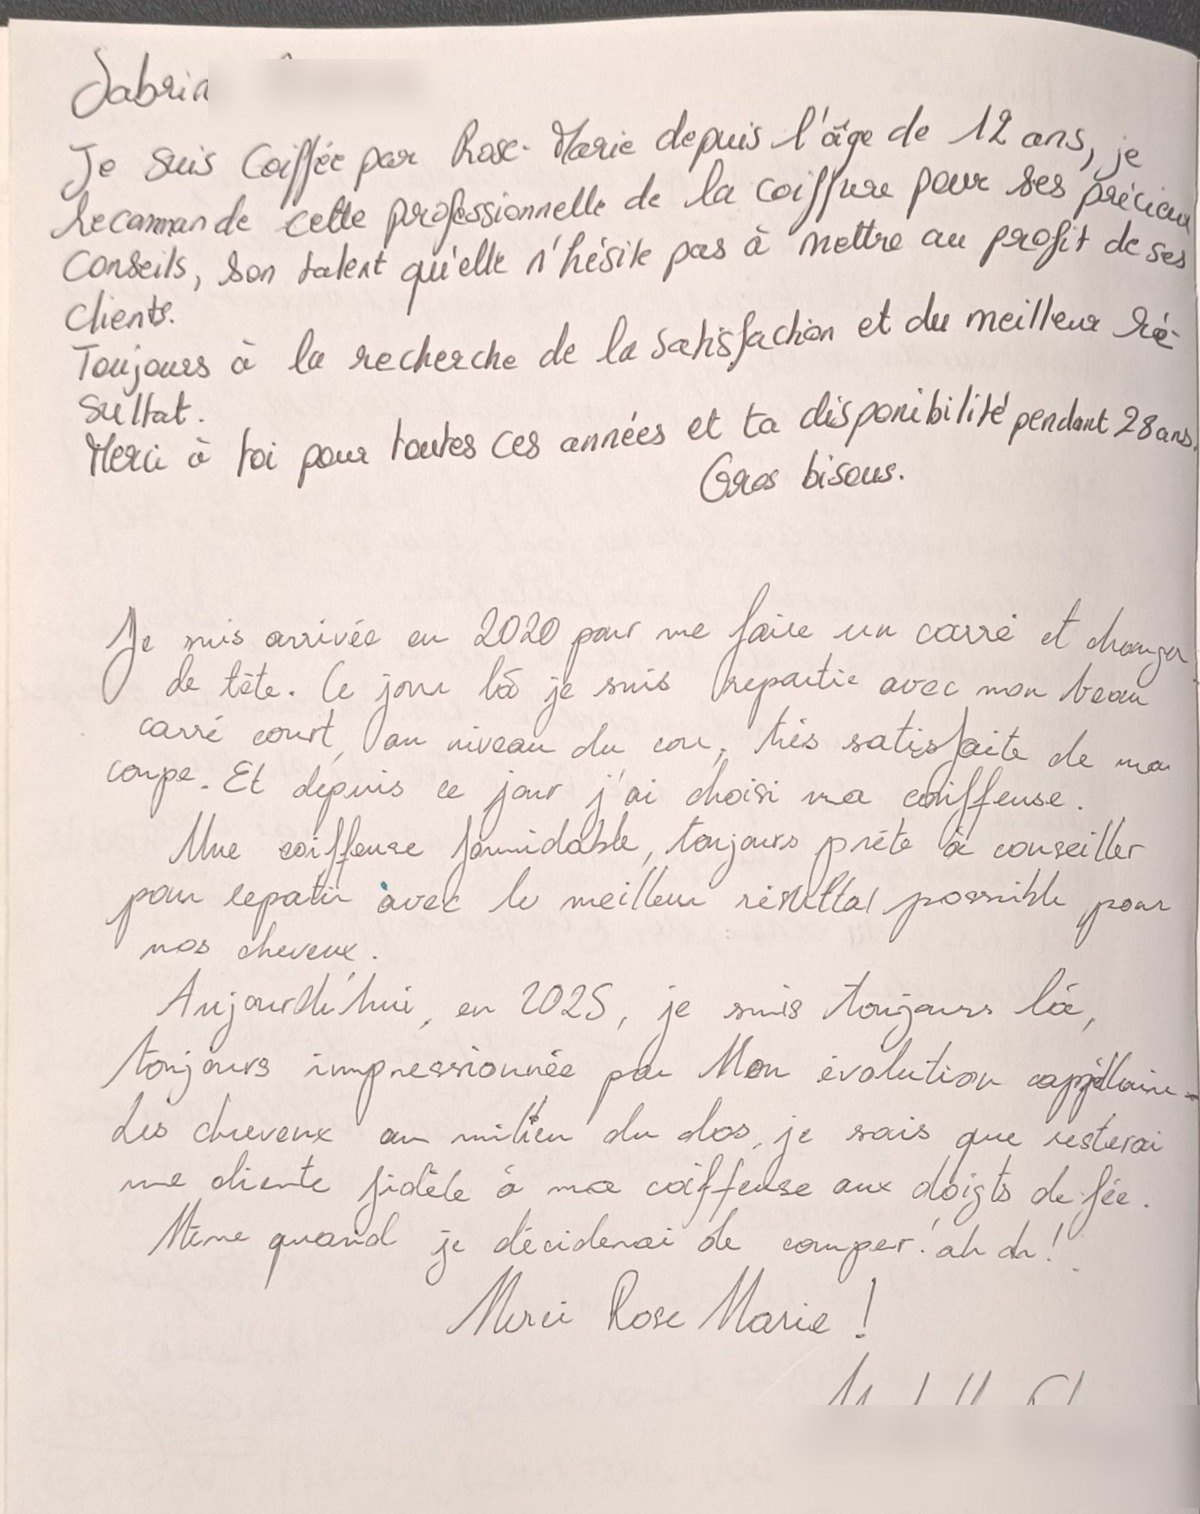 Sabrin
Je suis Coiffée par Rose-Marie depuis l'âge de 12 ans, je
recommande cette professionnelle de la coiffure pour ses précieux
Conseils, son talent qu'elle n'hésite pas à mettre au profit de ses
clients.
Toujours à la recherche de la satisfaction et du meilleur ré-
sultat.
Merci à toi pour toutes ces années et ta disponibilité pendant 28 ans.
Gros bisous.
Je suis arrivée en 2020 pour me faire un carré et changer
de tête. Ce jour là je suis repartie avec mon beau
carré court, au niveau du cou, très satisfaite de ma
coupe. Et depuis ce jour j'ai choisi ma coiffeuse.
Une coiffeuse formidable, toujours prête à conseiller
pour repatir avec le meilleur résultat possible pour
nos cheveux.
Aujourd'hui, en 2025, je suis toujours là,
toujours impressionnée par Mon évolution cappillaire.
Les cheveux au milieu du dos, je sais que resterai
une cliente fidèle à ma coiffeuse aux doigts de fée.
Même quand je déciderai de couper! ah ah!
Merci Rose Marie !